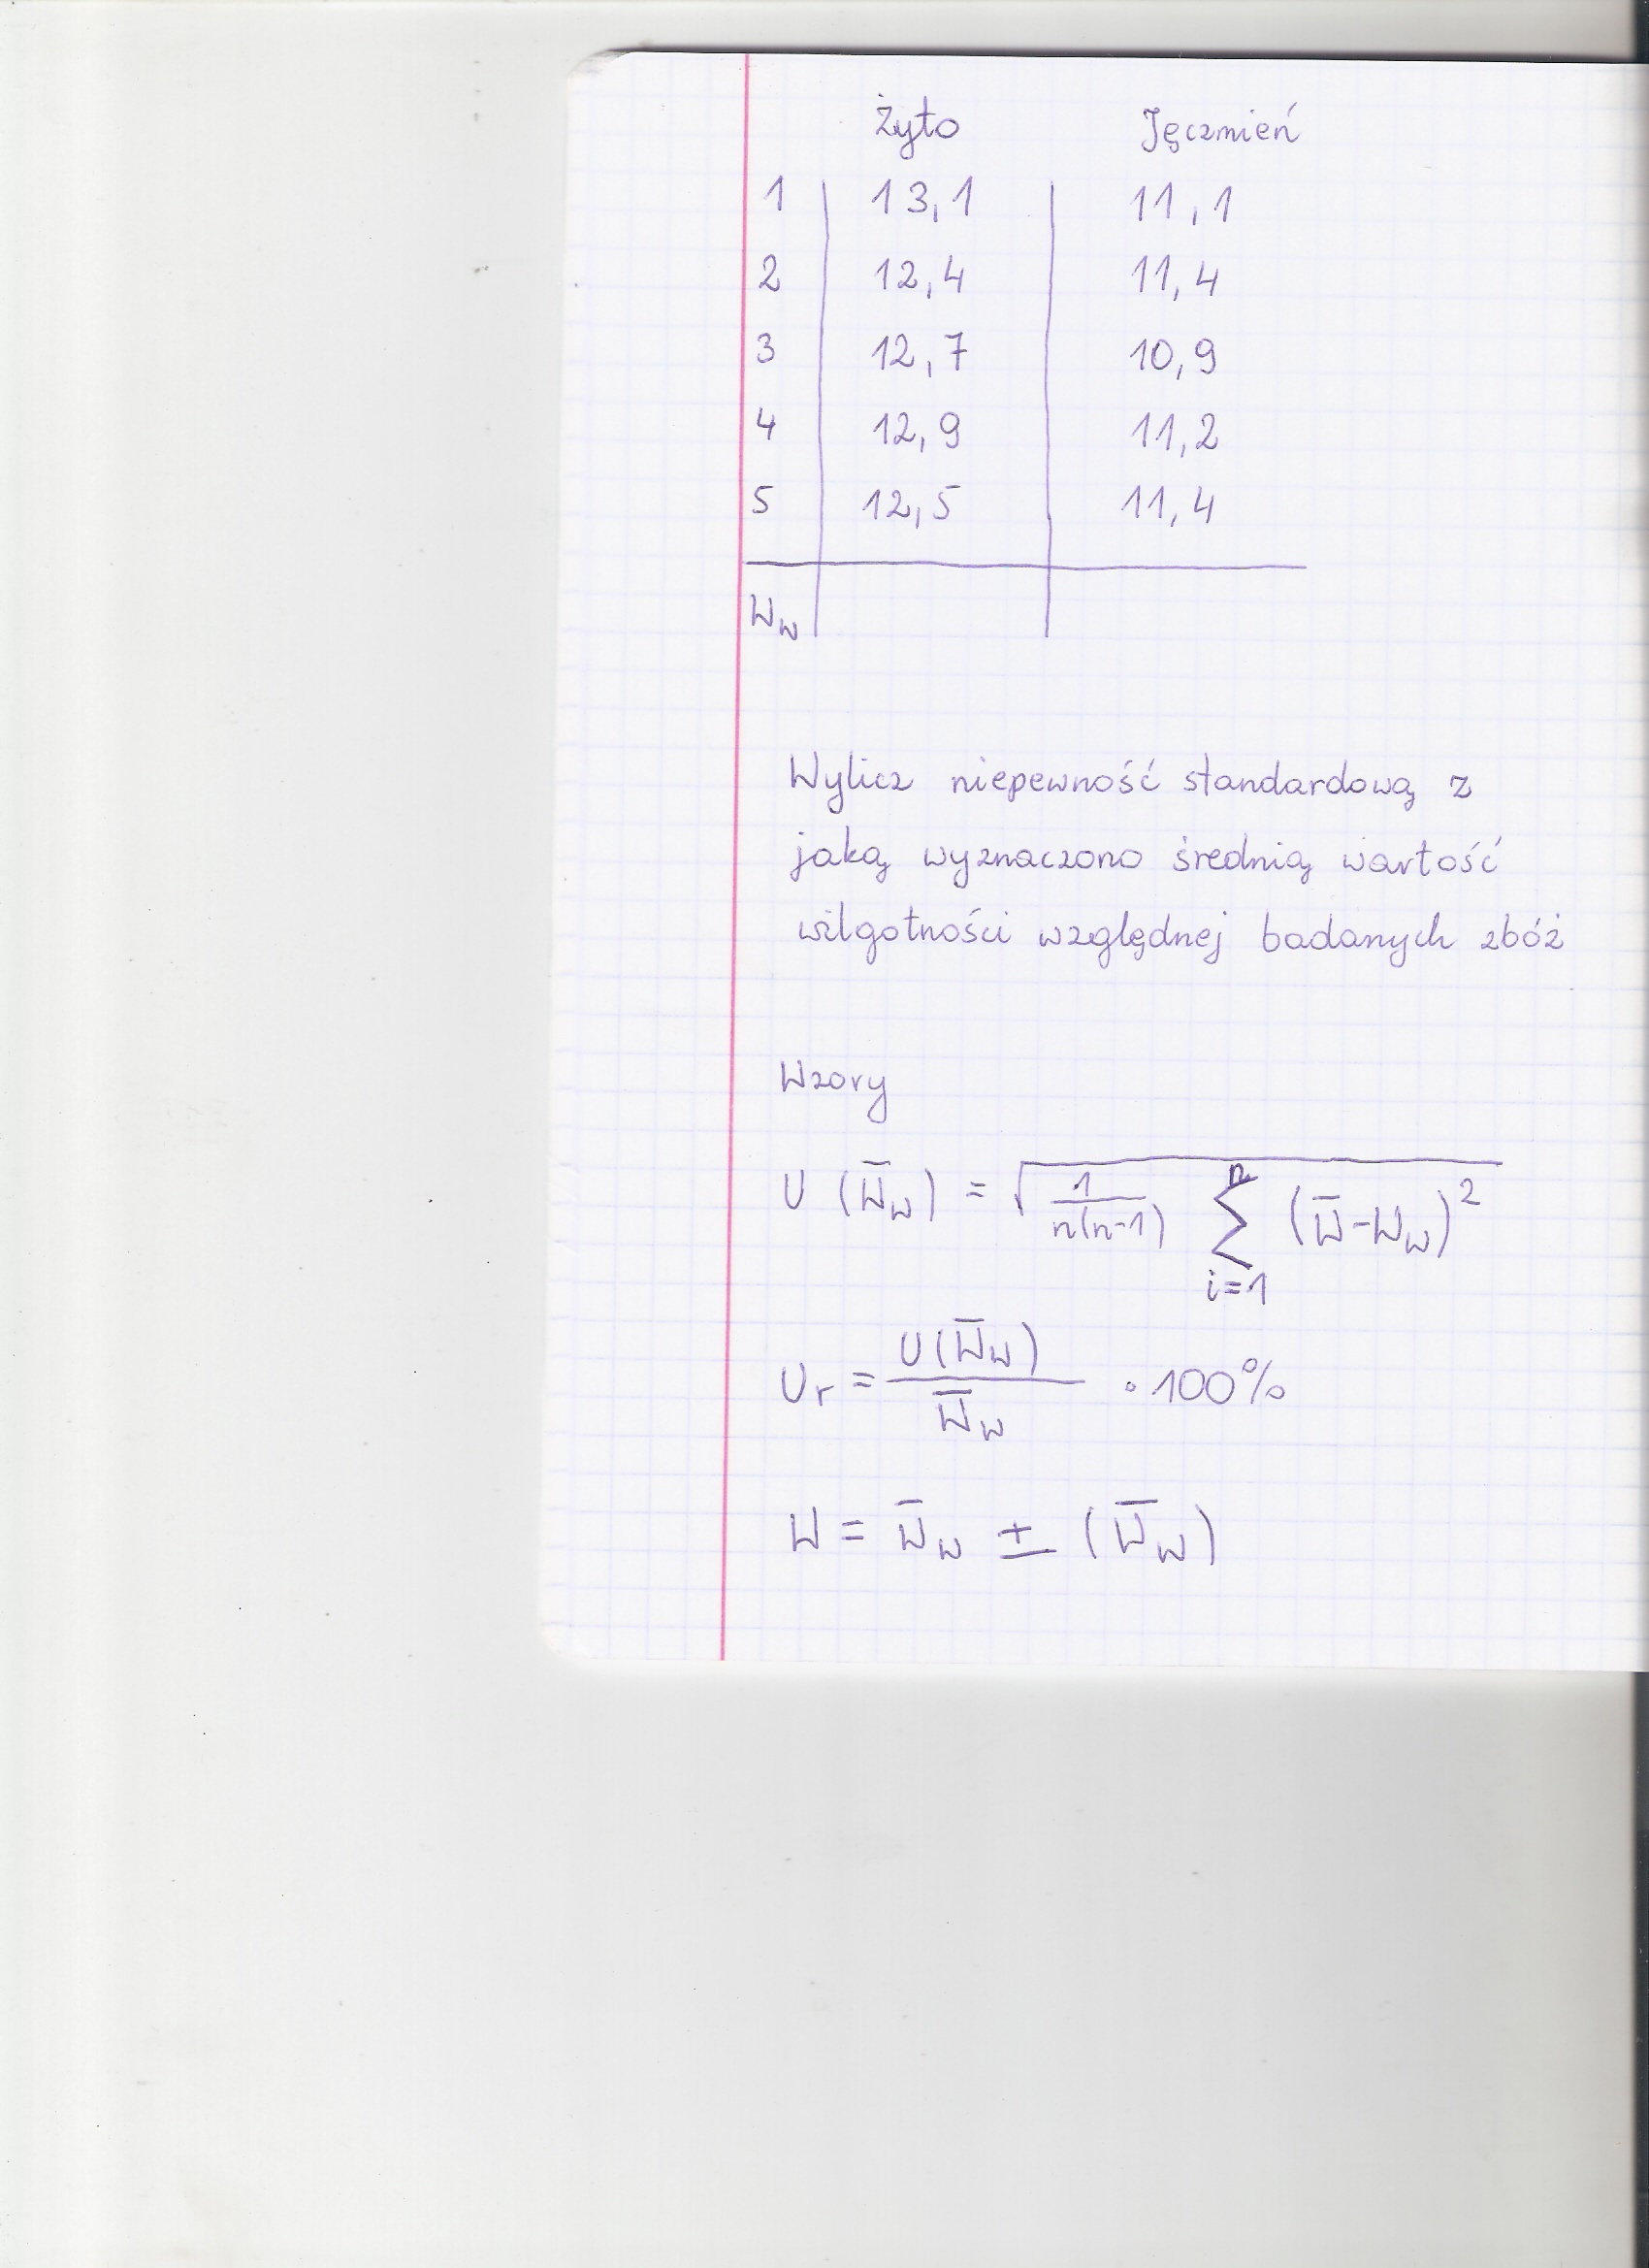 Żyto Jęczmień
1 13,1 11,1
2 12,4 11,4
3 12,7 10,9
4 12,9 11,2
5 12,5 11,4
Ww
Wylicz niepewność standardową z
jaką wyznaczono średnią wartość
wilgotności względnej badanych zbóż
Wzory
U (W̄w) = √(1/n(n-1) ∑ⁿᵢ₌₁ (W̄-Ww)²)
Ur = U(W̄w)/W̄w · 100%
W = W̄w ± (W̄w)